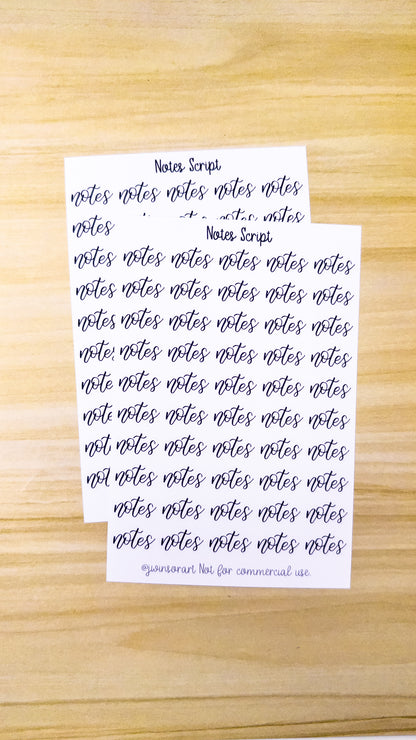 Notes Script
notes notes notes notes notes
notes
notes
notes
notes
Notes Script
notes notes notes notes notes
notes notes notes notes notes
notes notes notes notes notes
notes notes notes notes notes
notes notes notes notes notes
notes notes notes notes notes
notes notes notes notes notes
notes notes notes notes notes
notes notes notes notes notes
notes notes notes notes notes
@jwinsorart Not for commercial use.